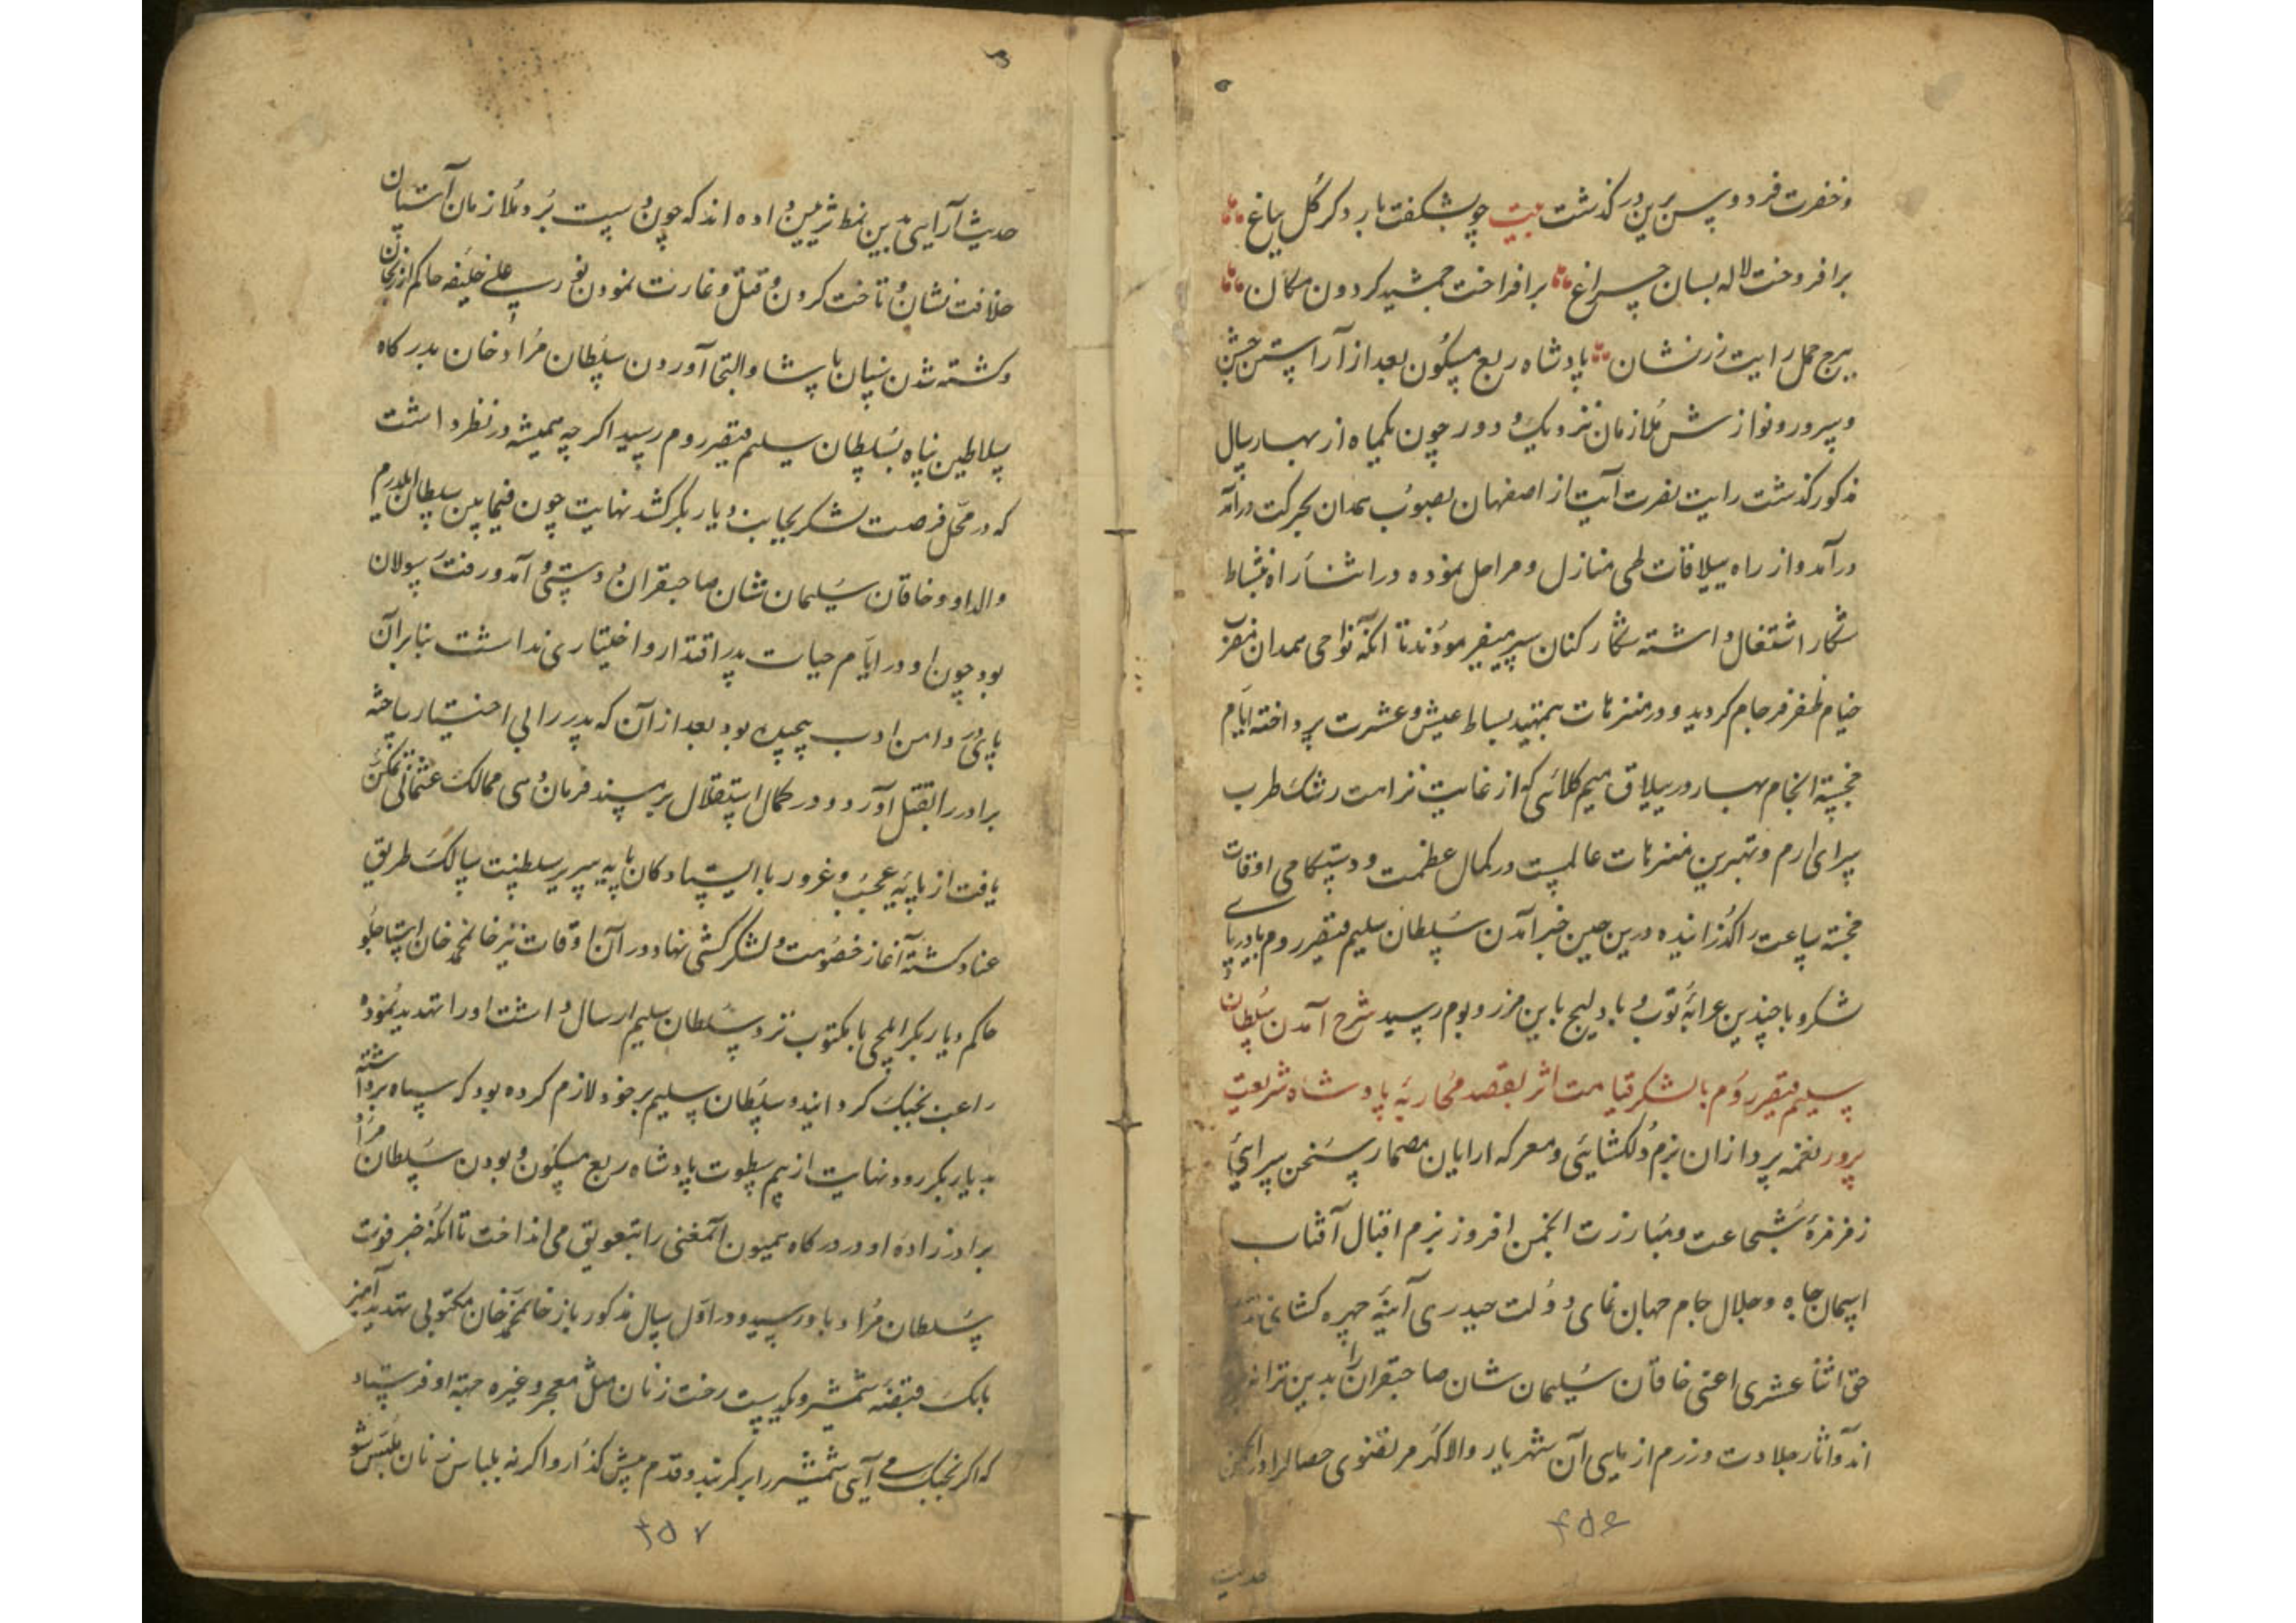 و خضرت فردوسی برین در گذشت بیت چو بشکفت بار دگر گل بباغ
برافروخت لاله بسان چراغ برافراخت جمشید گردون مکان
ببرج حمل رایت زرنشان پادشاه ربع مسکون بعد از آراستن جشن
و سرور و نوازش ملازمان نزدیک و دور چون یکماه از بهار سال
مذکور گذشت رایت نصرت آیت از اصفهان بصوب همدان بحرکت درآمد
درآمد و از راه ییلاقات طی منازل و مراحل نموده در اثناء راه بنشاط
شکار اشتغال داشته شکار کنان سیر میفرمودند تا آنکه نواحی همدان مضرب
خیام ظفر فرجام گردید و در متنزهات بتمهید بساط عیش و عشرت پرداخته ایام
خجسته انجام بهار در ییلاق میم کلائی که از غایت نزاهت رشک طرب
سرای ارم و بهترین متنزهات عالمست در کمال عظمت و دوستکامی اوقات
خجسته ساعت را گذرانیده درین حین خبر آمدن سلطان سلیم قیصر روم با دریای
لشکر و با چندین عرابه توپ و بادلیج باین مرز و بوم رسید شرح آمدن سلطان
سلیم قیصر روم با لشکر قیامت اثر بقصد محاربه پادشاه شریعت
پرور نغمه پردازان بزم دلکشائی و معرکه ارایان مضمار سخن سرایی
زفرفره شجاعت و مبارزت انجمن افروز بزم اقبال آفتاب
اسمان جاه و جلال جام جهان نمای دولت حیدری آینه چهره کشای
حق اثنا عشری اعنی خاقان سلیمان شان صاحبقران را بدین ترانه
اند و آثار جلادت و رزم ازمایی آن شهریار والا گهر مرتضوی خصال را در
حدیث
حدیث آرایی بدین نمط تزیین داده اند که چون دست برد ملازمان آستان
خلافت نشان و تاخت کردن و قتل و غارت نمودن نور علی خلیفه حاکم ازرنجان
و کشته شدن سنان پاشا و التجا آوردن سلطان مراد خان بدرگاه
سلاطین پناه بسلطان سلیم قیصر روم رسید اگر چه همیشه در نظر داشت
که در محل فرصت لشکر بجانب دیار بکر کشد نهایت چون فیمابین سلطان ایلدرم
والد او و خاقان سلیمان شان صاحبقران دوستی و آمد و رفت رسولان
بود چون او در ایام حیات پدر اقتدار و اختیاری نداشت بنابر آن
پای در دامن ادب پیچیده بود بعد از آن که پدر را بی اختیار ساخته
برادر را بقتل آورد و در کمال استقلال بر مسند فرمان دهی ممالک عثمانی تمکن
یافت از باپه عجب و غرور با ایستادکان پایه سریر سلطنت سالک طریق
عناد گشته آغاز خصومت و لشکر کشی نهاد و در آن اوقات نیز خانمحمد خان استاجلو
حاکم دیار بکر ایلچی با مکتوب نزد سلطان سلیم ارسال داشت او را تهدید نموده
راغب بجنگ گردانید و سلطان سلیم بر خود لازم کرده بود که سپاه برداشته
بدیار بکر رود نهایت از بیم سطوت پادشاه ربع مسکون و بودن سلطان مراد
برادر زاده او در درگاه همیون آنمعنی را بتعویق می انداخت تا آنکه خبر فوت
سلطان مراد باو رسید و در اول سال مذکور باز خانمحمد خان مکتوبی تهدید آمیز
با یک قبضه شمشیر و یک دست رخت زنان مثل معجر و غیره جهة او فرستاد
که اگر بجنک می آیی شمشیر را بر کمر بند و قدم پیش گذار و اگر نه بلباس زنان ملبس شو
۴۵۶
۴۵۷